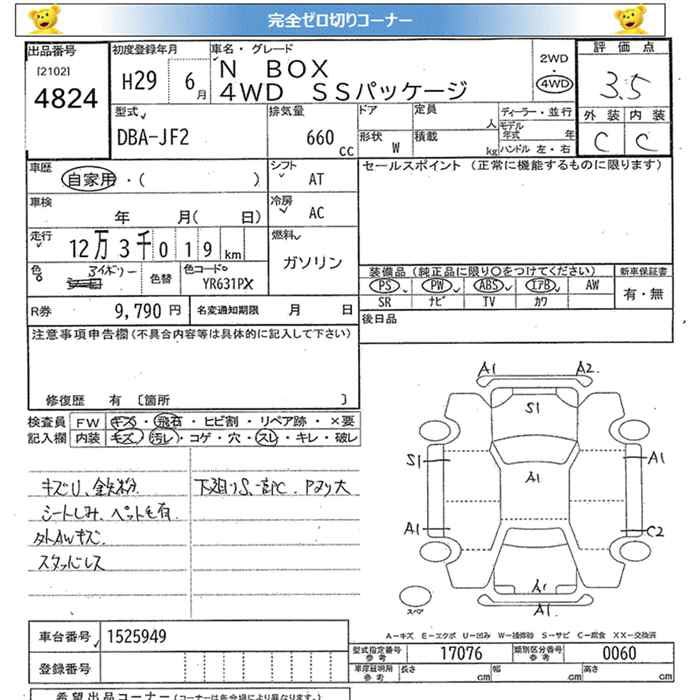 完全ゼロ切りコーナー
出品番号 初度登録年月 車名・グレード 2WD 評価点
[2102] 4824 H29 6月 N BOX 4WD 3.5
4WD SSパッケージ
型式 排気量 ドア 定員 人 ディーラー・並行 外装 内装
DBA-JF2 660 CC 形状 W 積載 kg モデル年式 年 ハンドル 左・右 C C
車歴 自家用・( ) シフト AT セールスポイント (正常に機能するものに限ります)
車検 年 月( 日) 冷房 AC
走行 12万3千019km 燃料 ガソリン
色 アイボリー 色替 色コードNo YR631PX
装備品(純正品に限り〇をつけてください) 新車保証書
PS PW ABS エアB AW 有・無
SR ナビ TV カワ
R券 9,790円 名変通知期限 月 日 後日品
注意事項申告欄(不具合内容等は具体的に記入して下さい)
修復歴 有 [箇所 ]
検査員 FW キズ・飛石・ヒビ割・リペア跡・×要
記入欄 内装 キズ・汚レ・コゲ・穴・スレ・キレ・破レ
キズU、鉄粉 下廻りS、
シートしみ、ペット毛有
外AWキズ
スタッドレス
A1 A2
S1
S1 A1 A1
A1 C2
A1
スペア A1
A-キズ E-エクボ U-凹み W-補修跡 S-サビ C-腐食 XX-交換済
車台番号 1525949 型式指定番号 参考 17076 類別区分番号 参考 0060
登録番号 車庫証明用 参考 長さ cm 幅 cm 高さ cm
希望出品コーナー(コーナーは各会場により異なります。)